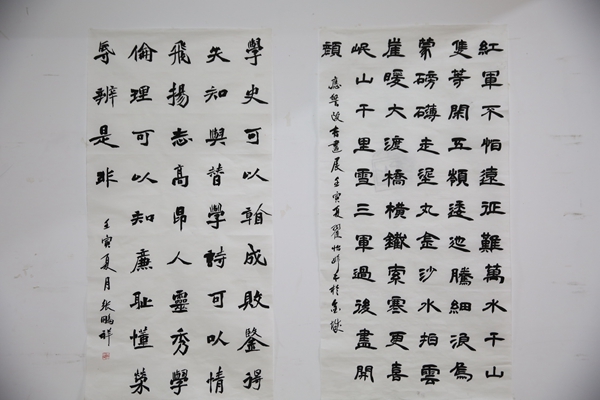 紅軍不怕遠征難萬水千山
隻等閑五嶺逶迤騰細浪烏
蒙磅礴走泥丸金沙水拍雲
崖暖大渡橋橫鐵索寒更喜
岷山千里雪三軍過後盡開
顏
書畫展壬寅夏翟怡
學史可以翰成敗鑒得
失知興替學詩可以情
飛揚志高昂人靈秀學
倫理可以知廉恥懂榮
辱辨是非
壬寅夏月張鵬祥